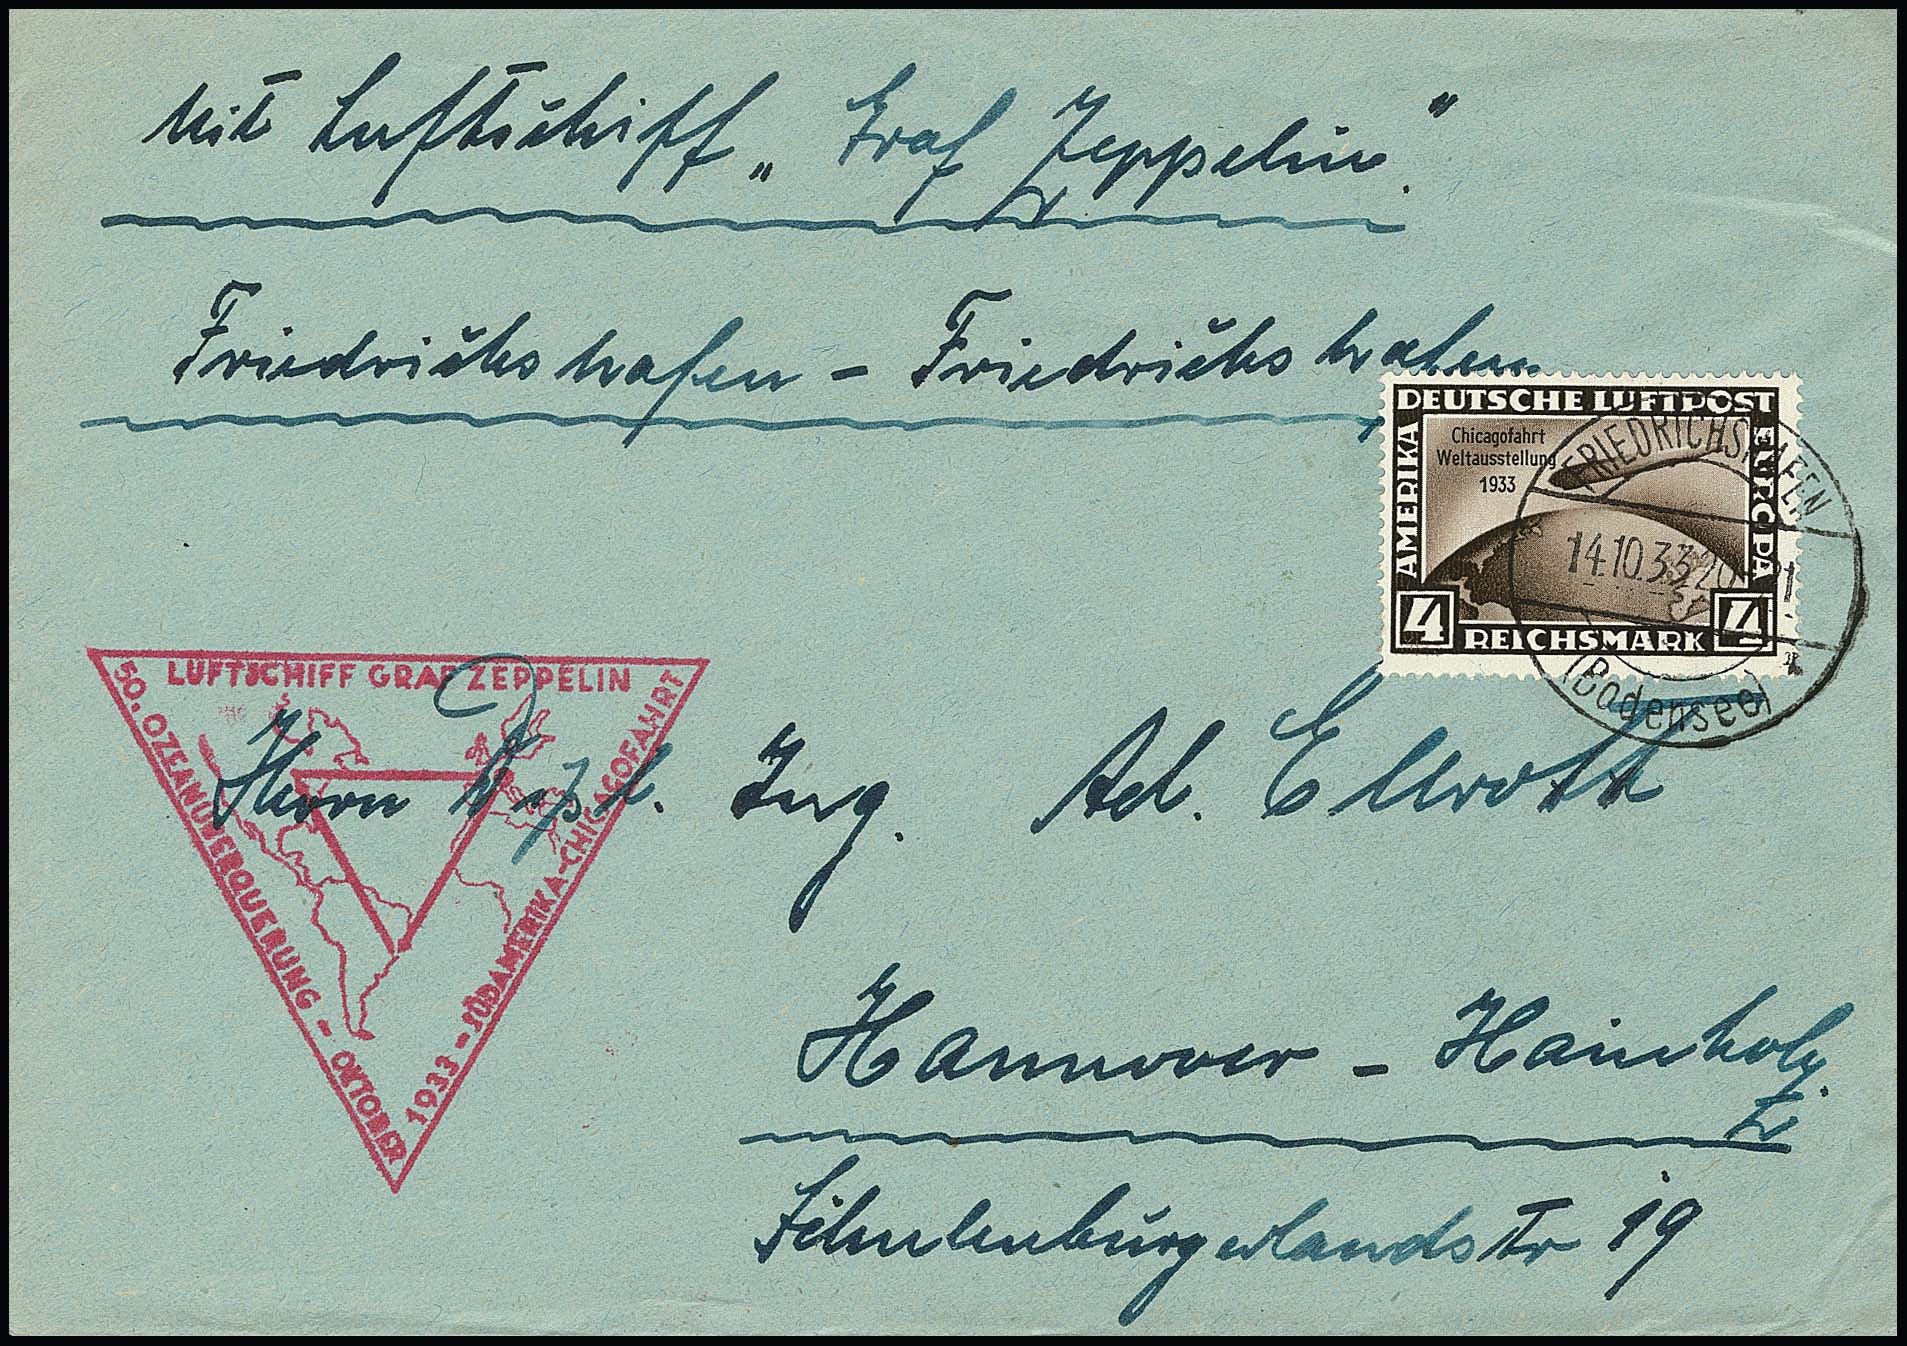 Mit Luftschiff „Graf Zeppelin."
Friedrichshafen – Friedrichshafen
DEUTSCHE LUFTPOST
AMERIKA
EUROPA
Chicagofahrt
Weltausstellung
1933
4 REICHSMARK 4
FRIEDRICHSHAFEN
14.10.33.20-21
(Bodensee)
LUFTSCHIFF GRAF ZEPPELIN
50. OZEANÜBERQUERUNG – OKTOBER
1933 – SÜDAMERIKA-CHICAGOFAHRT
Herrn Dipl. Ing. Ad. Ellroth
Hannover – Hainholz.
Schulenburgerlandstr 19